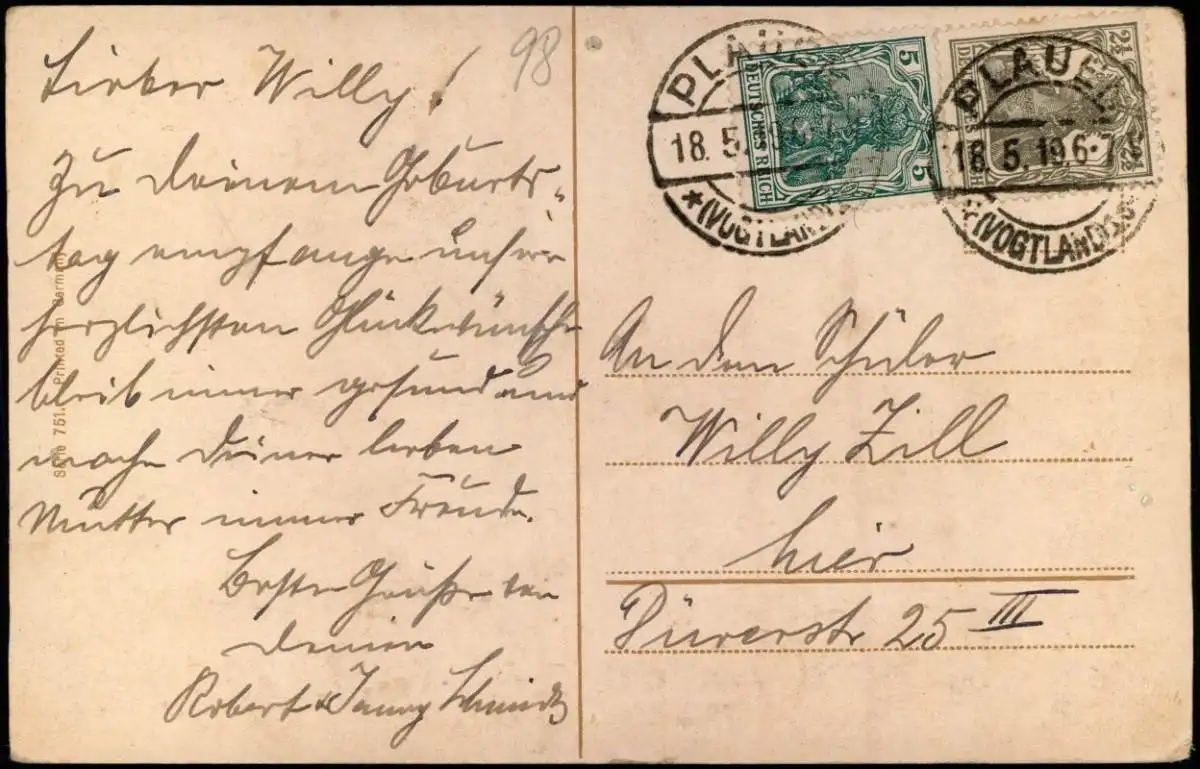 Lieber Willy!
98
Zu Deinem Geburts-
tag empfange unsre
herzlichsten Glückwünsche
bleib immer gesund und
mache Deiner lieben
Mutter immer Freude.
Beste Grüße von
Deinen
Robert & Fanny Schmidt
Serie 751. Printed in Germany
PLAUEN
18.5.
*(VOGTLAND)
5 DEUTSCHES REICH 5
PLAUEN
18.5.19.6-7
*(VOGTLAND)
2½ 2½
An den Schüler
Willy Zill
hier
Dürerstr 25 III